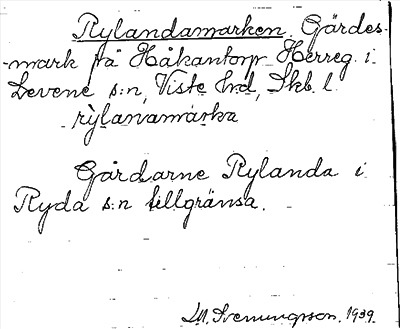 Rylandamarken. Gärdes-
-mark på Håkantorp Herreg. i
Levene s:n, Viste hrd, Skb. l.
rỳlanamarka
Gårdarne Rylanda i
Ryda s:n tillgränsa.
M. Svenungsson. 1939.